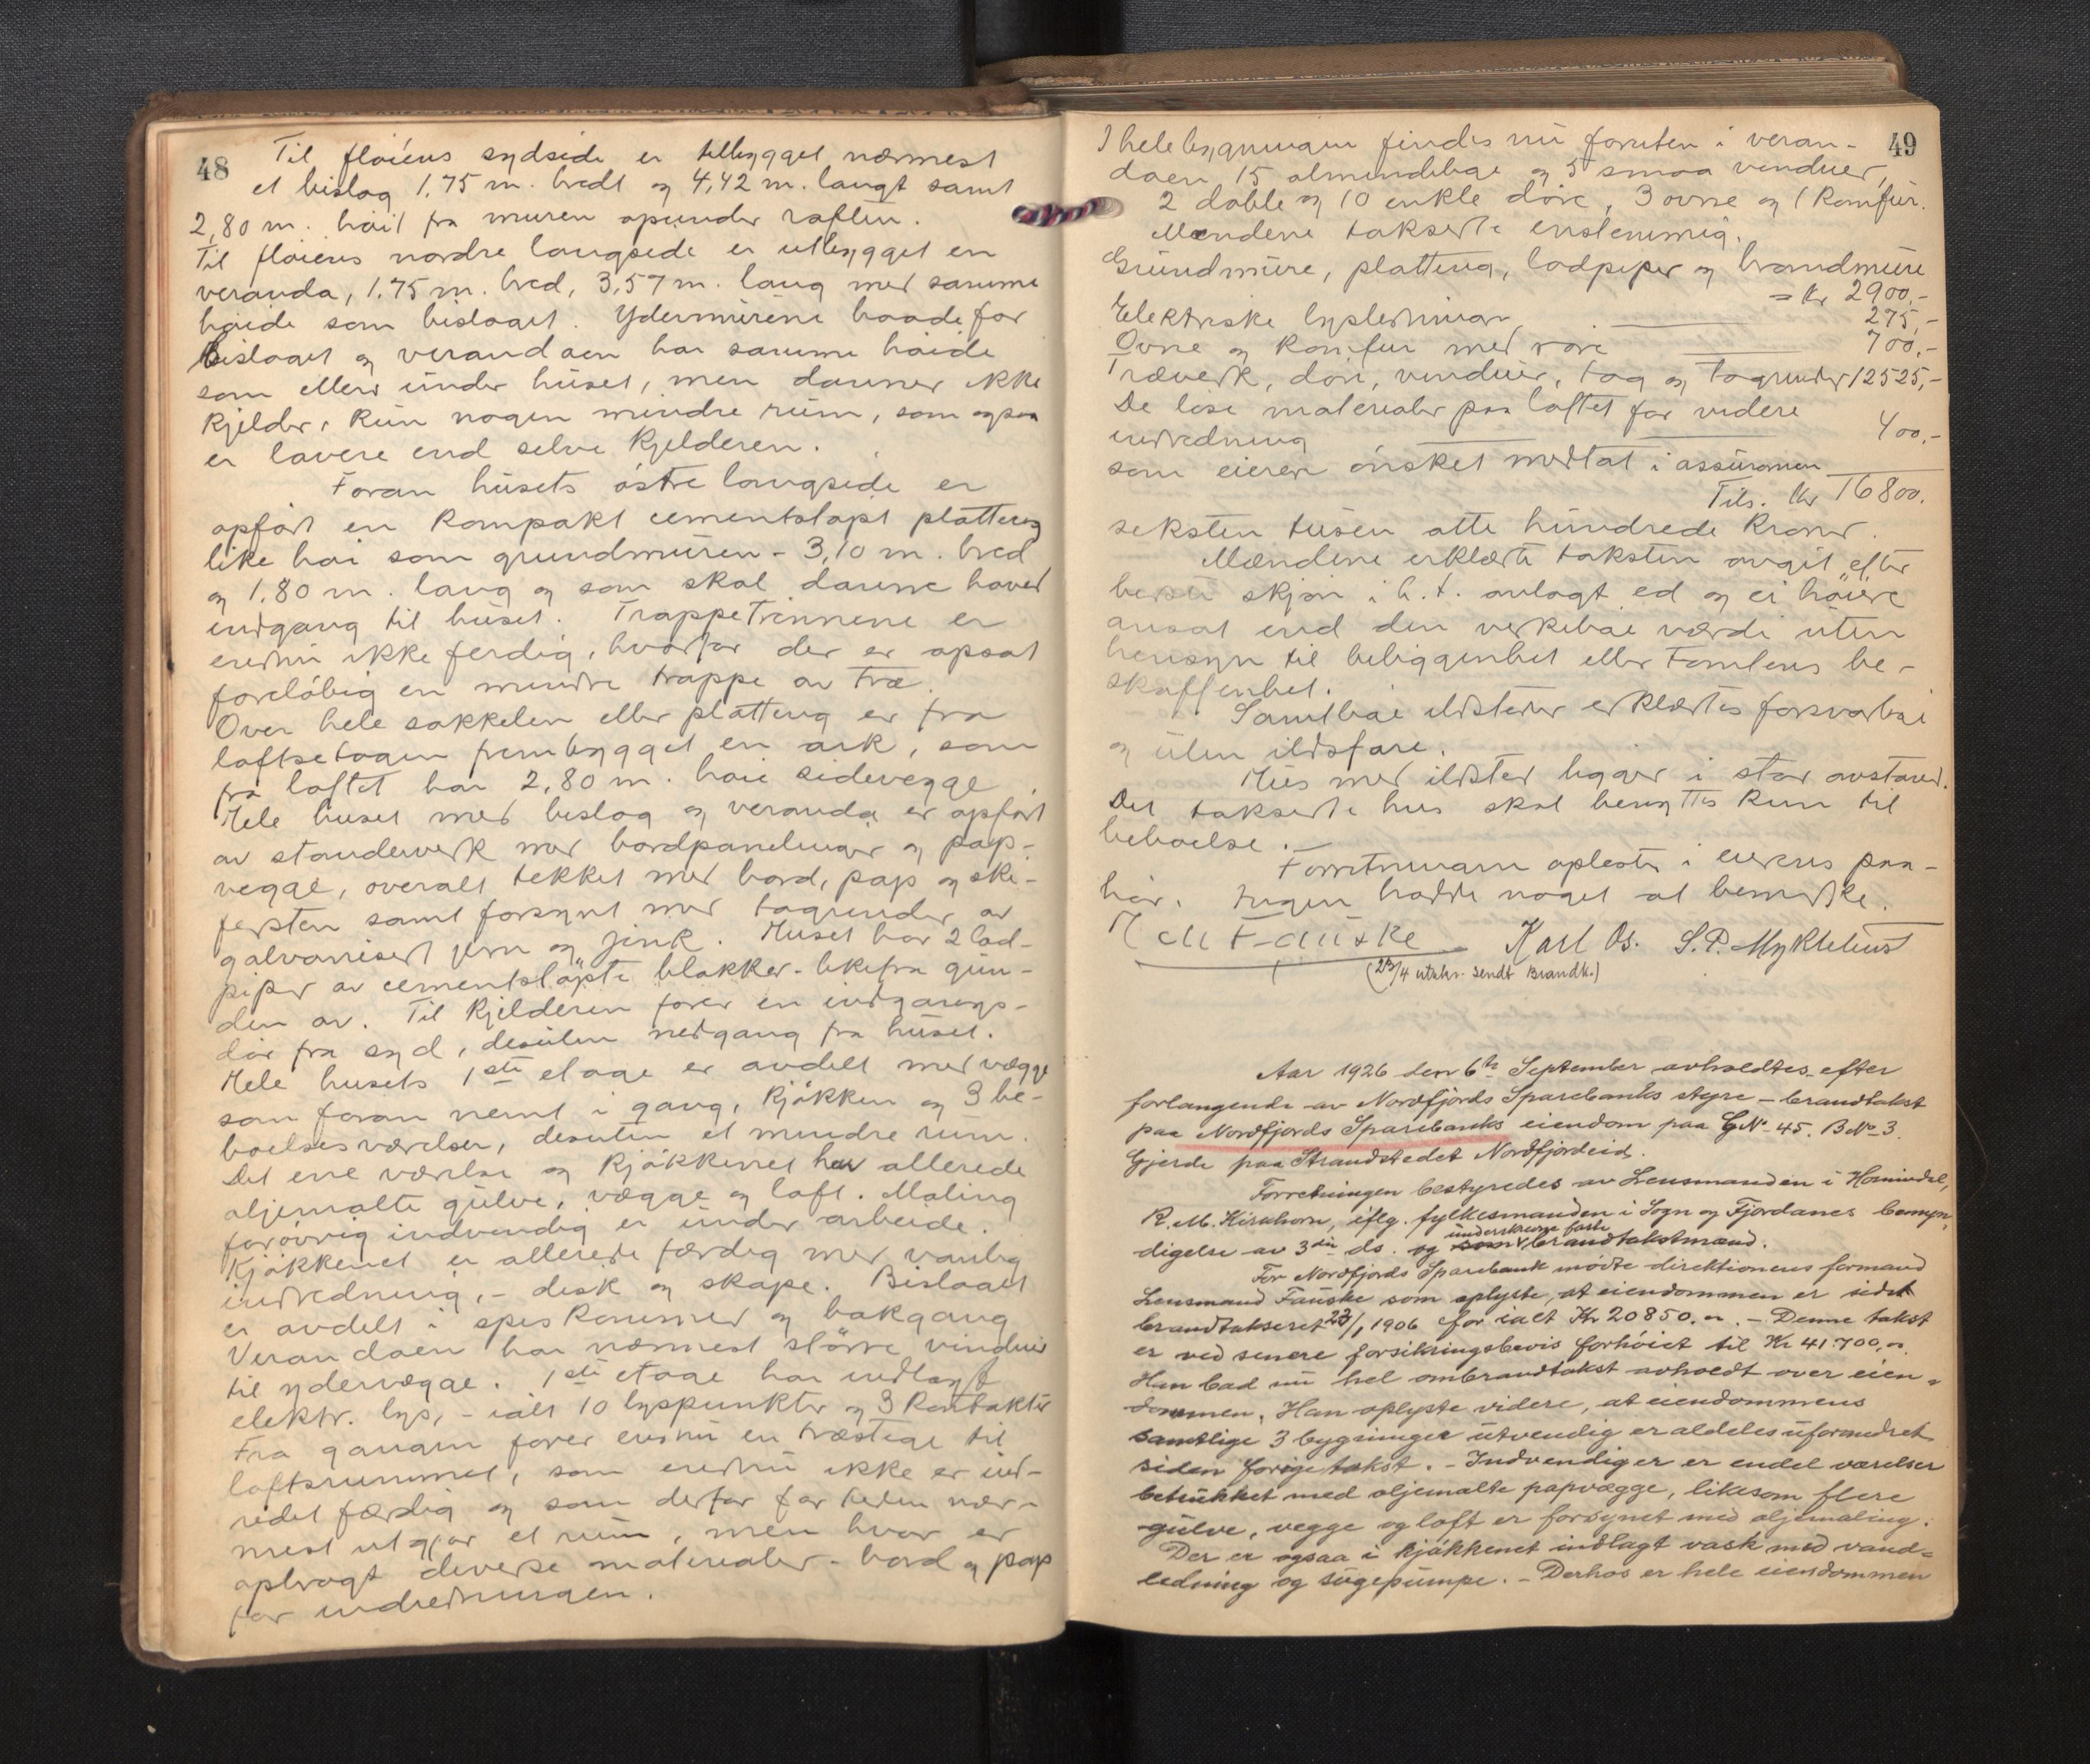 48
Til fløiens sydside er tilbygget nærmest
et bislag 1,75 m. bredt og 4,42 m. langt samt
2,80 m. høit fra muren opunder raften.
Til fløiens nordre langside er utbygget en
veranda, 1,75 m. bred, 3,57 m. lang med samme
høide som bislaget. Ydermurene baade for
bislaget og verandaen har samme høide
som ellers under huset, men danner ikke
kjelder, kun nogen mindre rum, som ogsaa
er lavere end selve kjelderen.
Foran husets østre langside er
opført en kompakt cementstøpt platting
like høi som grundmuren - 3,10 m. bred
og 1,80 m. lang og som skal danne hoved
indgang til huset. Trappetrinnene er
endnu ikke ferdig, hvorfor der er opsat
foreløbig en mindre trappe av træ.
Over hele sokkelen eller platting er fra
loftsetagen frembygget en ark, som
fra loftet har 2,80 m. høie sidevegge
Hele huset med bislag og veranda er opført
av stenderverk med bordpanelinger og pap-
vegge, overalt tekket med bord, pap og ski-
fersten samt forsynt med tagrender av
galvanisert jern og zink. Huset har 2 lod-
piper av cementstøpte blokker - like fra grun-
den av. Til kjelderen fører en indgangs-
dør fra syd, desuten nedgang fra huset.
Hele husets 1ste etage er avdelt med vægge
som foran nemt i gang, kjøkken og 3 be-
boelsesværelser, desuten et mindre rum.
Det ene værelse og kjøkkenet har allerede
oljemalte gulve, vægge og loft. Maling
forøvrig indvendig er under arbeide.
Kjøkkenet er allerede færdig med vanlig
indredning, - disk og skape. Bislaget
er avdelt i spiskammer og bakgang
Verandaen har nærmest større vinduer
til ydervægge. 1ste etage har indlagt
elektr. lys, - ialt 10 lyspunkter og 3 kontakter
Fra gangen fører endnu en træstige til
loftsrummet, som endnu ikke er ind-
redet færdig og som derfor for tiden nær-
mest utgjør et rum, men hvor er
opbragt diverse materialer - bord og pap
for indredningen.
49
I hele bygningen findes nu foruten i veran-
daen 15 almindelige og 5 smaa vinduer,
2 doble og 10 enkle døre, 3 ovne og 1 komfur.
Mændene takserte enstemmig.
Grundmure, platting, lodpiper og brandmure
= Kr 2900,-
Elektriske lysledninger 275,-
Ovne og komfur med rør 700,-
Træverk, dører, vinduer, tag og tagrender 12525,-
De løse materialer paa loftet for videre
indredning 400,-
som eieren ønsket medtat i assurancen
Tils. Kr 16800.
seksten tusen atte hundrede kroner.
Mændene erklærte taksten avgit efter
beste skjøn i h.t. avlagt ed og ei høiere
ansat end den virkelige værdi uten
hensyn til beliggenhet eller tomtens be-
skaffenhet.
Samtlige ildsteder erklærtes forsvarlige
og uten ildsfare.
Hus med ildsted ligger i stor avstand.
Det takserte hus skal benyttes kun til
beboelse.
Forretningen oplestes i eierens paa-
hør. Ingen hadde noget at bemerke.
Fauske Karl Os. S. P. Myklebust
(23/4 utskr. sendt Brandk.)
Aar 1926 den 6te September avholdtes efter
forlangende av Nordfjords Sparebanks styre - brandtakst
paa Nordfjords Sparebanks eiendom paa GNo 45. BNo 3.
Gjerde paa Strandstedet Nordfjordeid.
Forretningen bestyredes av Lensmanden i Hornindal,
R. M. Kirkhorn, iflg. fylkesmanden i Sogn og Fjordanes bemyn-
underskrevne faste
digelse av 3die ds. og som brandtakstmænd.
For Nordfjords Sparebank mødte direktionens formand
Lensmand Fauske som oplyste, at eiendommen er sidst
brandtakseret 23/1 1906 for ialt Kr 20850.00. - Denne takst
er ved senere forsikringsbevis forhøiet til Kr 41.700,00.
Han bad nu hel ombrandtakst avholdt over eien-
dommen. Han oplyste videre, at eiendommens
samtlige 3 bygninger utvendig er aldeles uforandret
siden forige takst. - Indvendig er er endel værelser
betrukket med oljemalte papvægge, likesom flere
gulve, vegge og loft er forsynet med oljemaling.
Der er ogsaa i kjøkkenet indlagt vask med vand-
ledning og sugepumpe. - Derhos er hele eiendommen